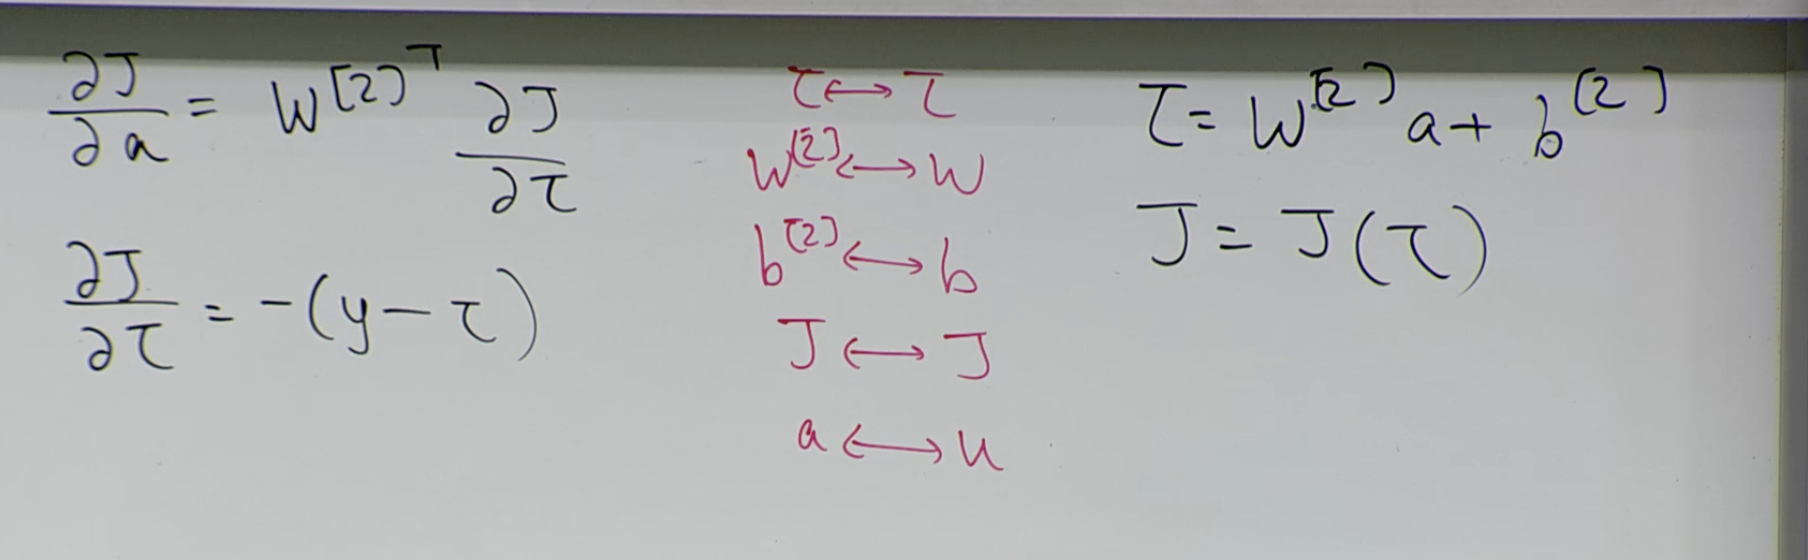 ∂J/∂a = W^[2]ᵀ ∂J/∂τ
∂J/∂τ = -(y - τ)
τ ↔ τ
W^[2] ↔ W
b^[2] ↔ b
J ↔ J
a ↔ u
τ = W^[2] a + b^[2]
J = J(τ)